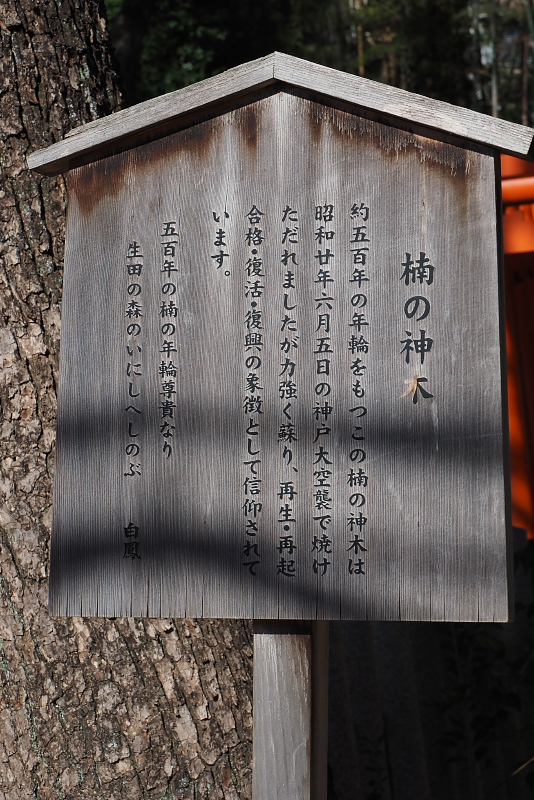 楠の神木
約五百年の年輪をもつこの楠の神木は
昭和廿年六月五日の神戸大空襲で焼け
ただれましたが力強く蘇り、再生・再起
合格・復活・復興の象徴として信仰されて
います。
五百年の楠の年輪尊貴なり
生田の森のいにしへしのぶ　白鳳